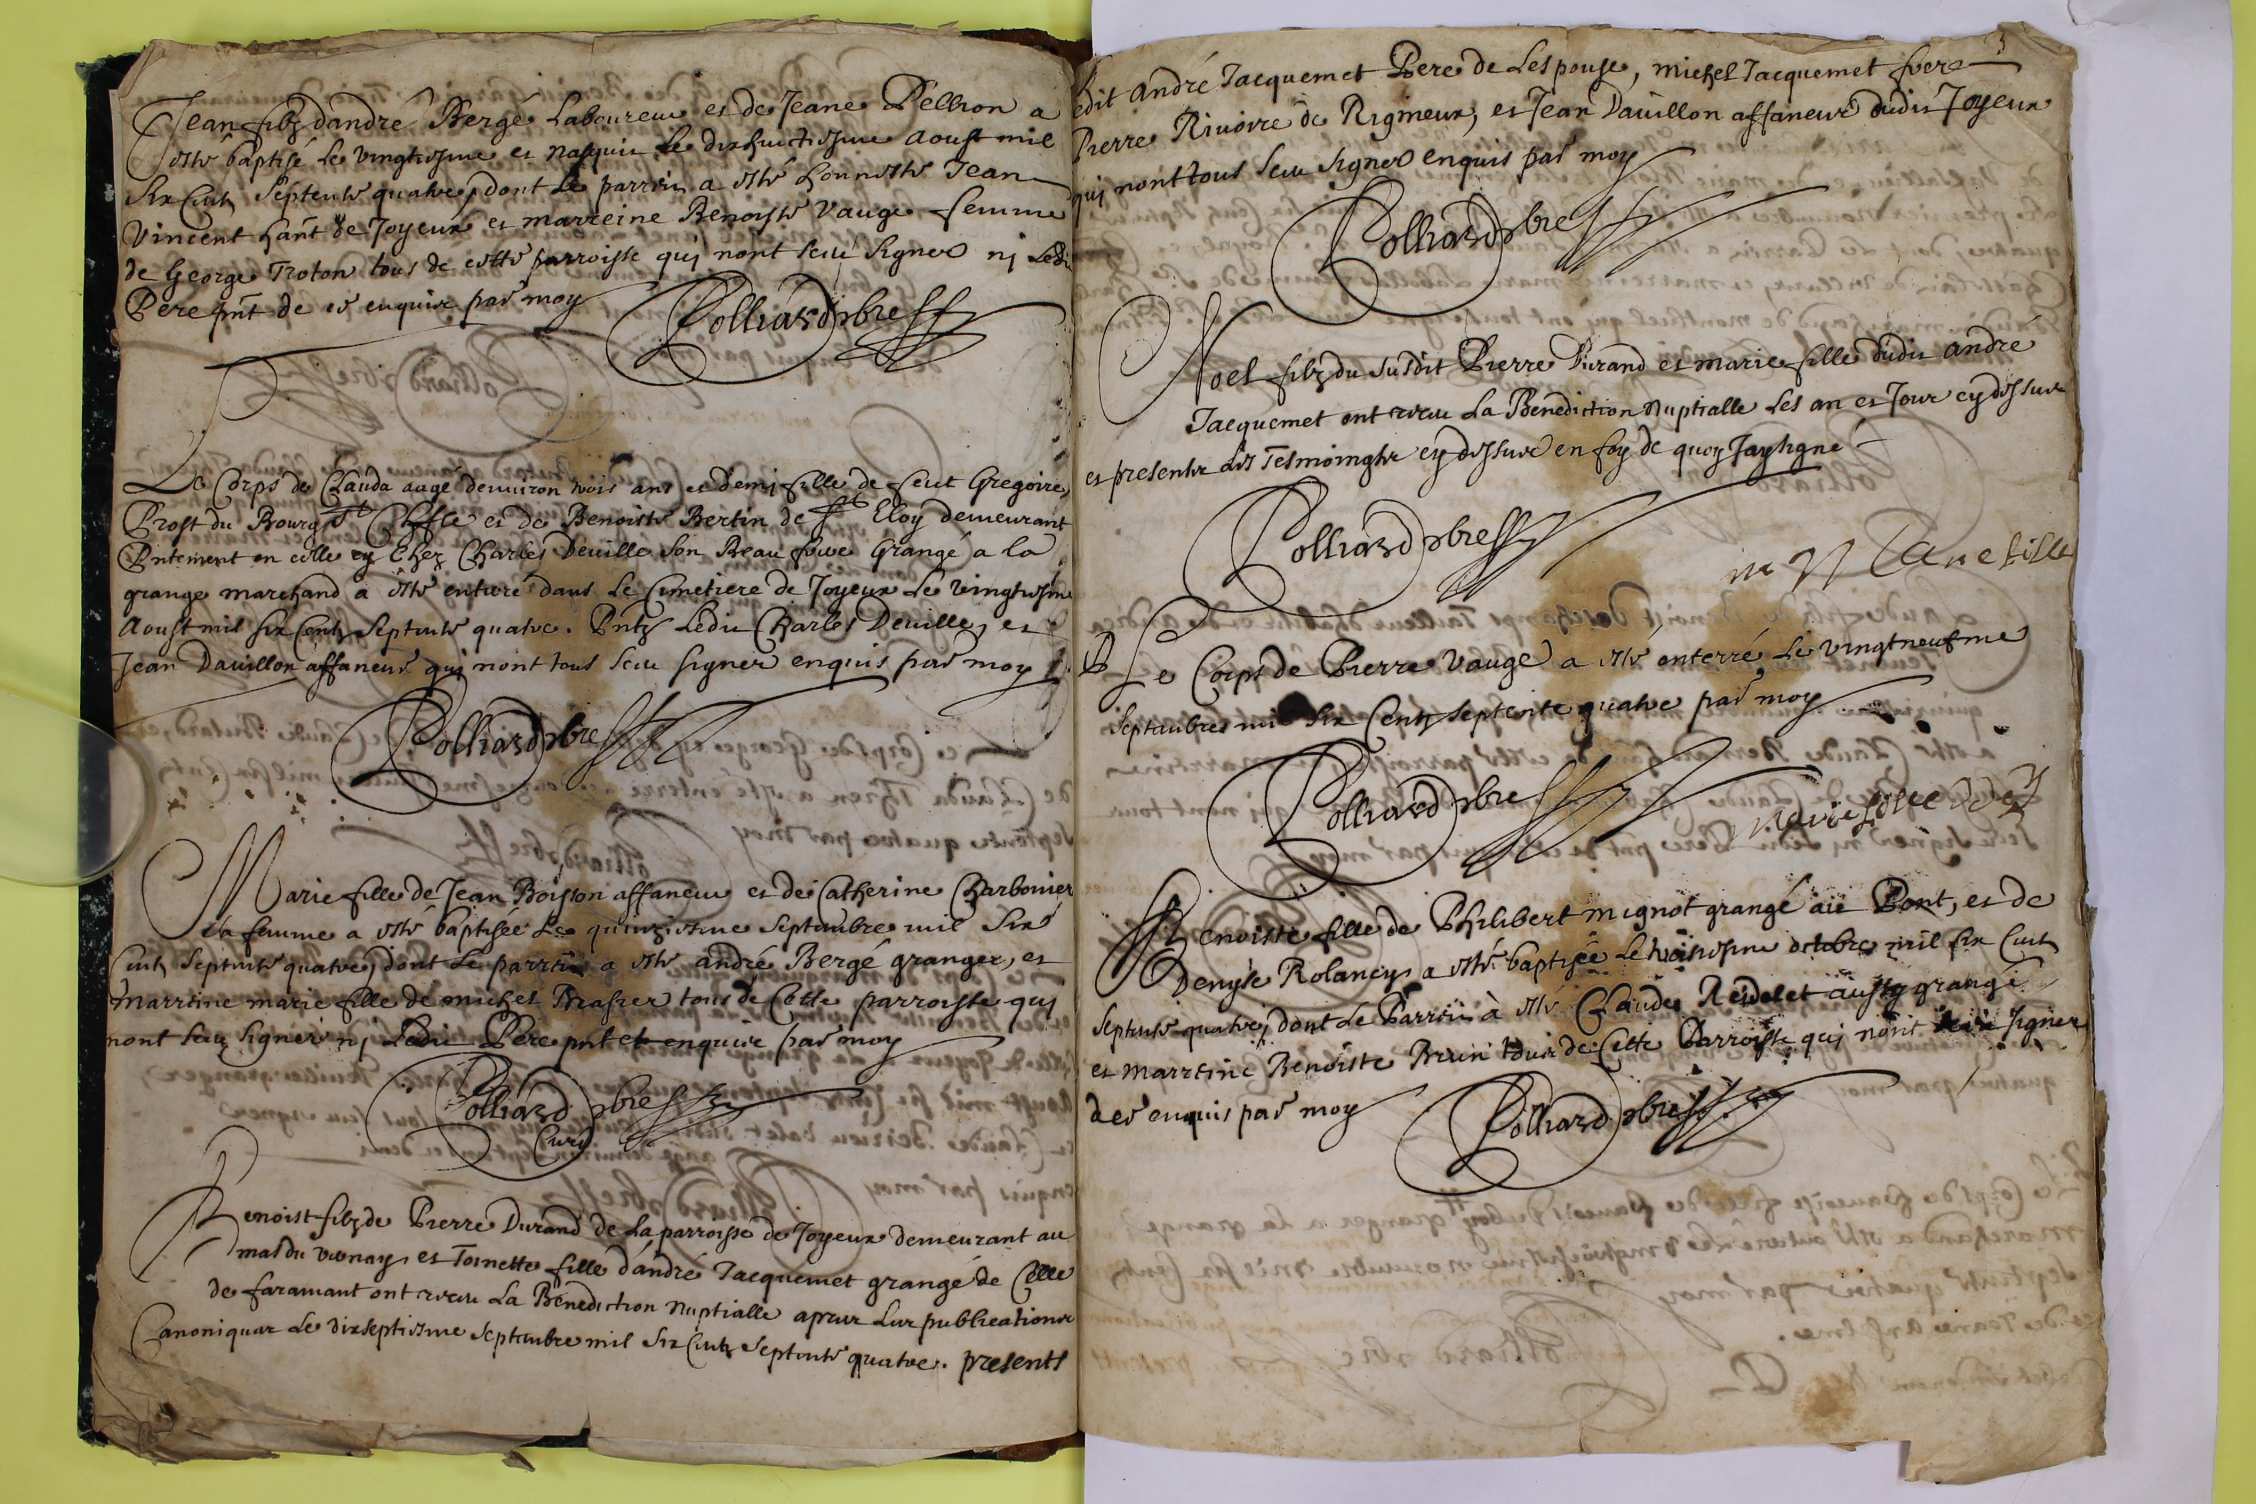 Jean filz dandré Bergé Laboureur et de Jeane Pellion a
esté baptisé le vingtiesme et nasquit le dixhuictiesme Aoust mil
Six Cents Septente quatre, dont le parrein a esté honneste Jean
Vincent hânt de Joyeux et marreine Benoiste Vauge femme
de George Troton tous de cette parroisse qui nont sceu signer ni ledit
Pere pnt de ce enquis par moy
Polliard pbre
Le Corps de Clauda aagé denuiron trois ans et demi fille de feut Gregoire
Prost du Bourg St Chfle et de Benoiste Bertin de St Eloy demeurant
Pntement en celle cy Chez Charles Deuille son Beau frere Grangé a la
grange marchand a esté enterré dans le Cimetiere de Joyeux le vingtiesme
Aoust mil six Cents Septente quatre. Pnts Ledit Charles Deuille, et
Jean Dauillon affaneur qui nont tous sceu signer enquis par moy
Polliard pbre
Marie fille de Jean Boisson affaneur et de Catherine Charbonier
sa femme a esté baptisée le quinziesme Septembre mil Six
Cents Septente quatre, dont le parrein a esté andré Bergé granger, et
marrine marie fille de michel Brasier tous de Cette parroisse qui
nont sceu signer ni ledit Pere pnt et enquis par moy
Polliard pbre
Curé
Benoist filz de Pierre Durand de la parroisse de Joyeux demeurant au
mas du vernay et Toinette fille dándré Jacquemet grangé de Celle
de faramant ont receu La Bénédiction Nuptialle apres leur publications
Canoniques le dixseptiesme Septembre mil Six Cents Septente quatre. presents
ledit André Jacquemet Pere de Lespouse, michel Jacquemet frere
Pierre Riuoire de Rigneux, et Jean Dauillon affaneur dudit Joyeux
qui nont tous sceu signer enquis par moy
Polliard pbre
Noel filz du susdit Pierre Durand et marie fille dudit André
Jacquemet ont receu La Bénédiction Nuptialle les an et Jour cy dessus
et presents les Tesmoings cy dessus en foy de quoy Jay signé
Polliard pbre
Le Corps de Pierre Vauge a esté enterré le vingtneufme
Septembre mil Six Cents Septente quatre par moy
Polliard pbre
Benoiste fille de Philibert mignot grangé au Pont, et de
Denyse Rolancy a esté baptisée le troisiesme octobre mil six Cents
Septente quatre, dont le Parrein à esté Claude Reidelet aussy grangé
et marreine Benoiste Brun tous de Cette Parroisse qui nont sceu signer
de ce enquis par moy
Polliard pbre